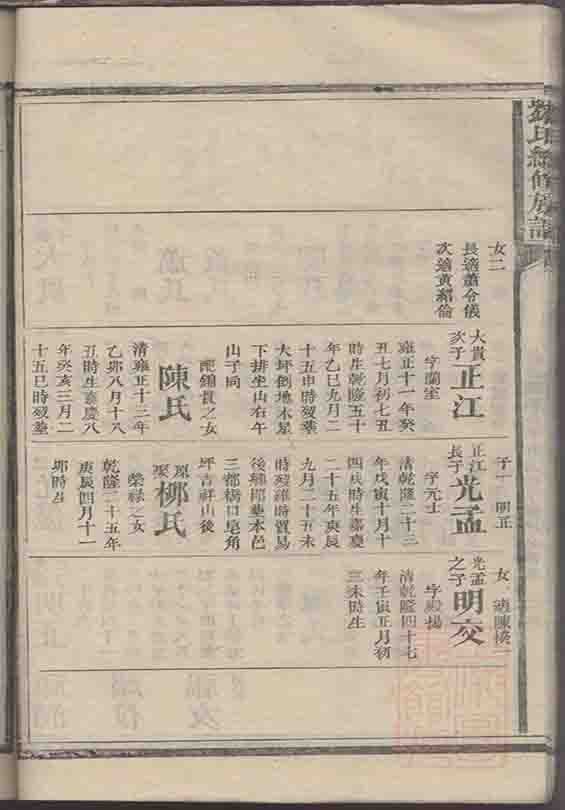 氏續修族譜
女二
長適蕭令儀
次適黃紹倫
大貴
次子
正江
字蘭室
雍正十一年癸
丑七月初七丑
時生乾隆五十
年乙巳九月二
十五申時歿葬
大坪倒地木星
下排坐山右午
山子向
配錦貴之女
陳氏
清雍正十三年
乙卯八月十八
丑時生嘉慶八
年癸亥三月二
十五巳時歿葬
子一 明正
正江
長子
光孟
字元士
清乾隆二十三
年戊寅十月十
四戌時生嘉慶
二十五年庚辰
九月二十五未
時歿維時貿易
後鄉即葬本邑
三都橋口皂角
坪吉祥山後
原聚
柳氏
榮祿之女
乾隆二十五年
庚辰四月十一
卯時生
女一適陳
光孟
之子
明交
字殿揚
清乾隆四十七
年壬寅正月初
三未時生